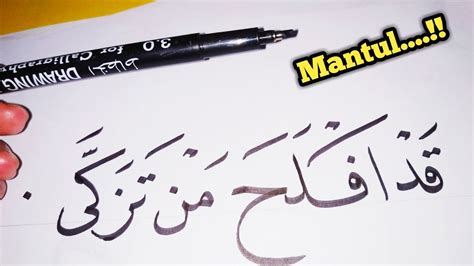 3.0 for Calligraphy
DRAWING الخطاط
Mantul....!!
قَدْ اَفْلَحَ مَنْ تَزَكَّى .